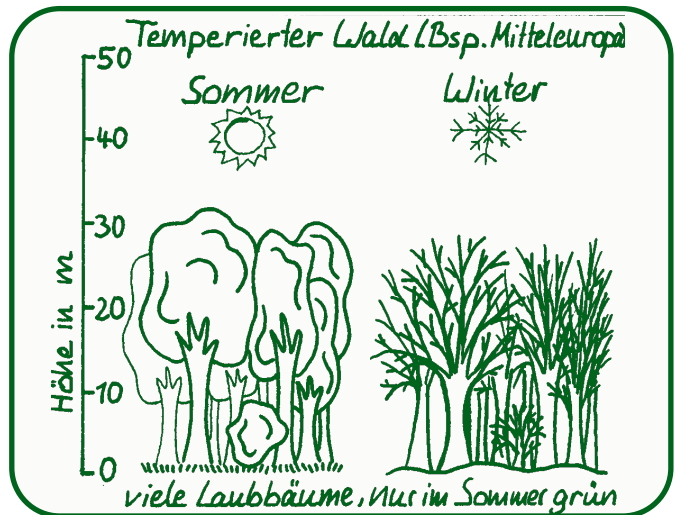 Temperierter Wald (Bsp. Mitteleuropa)
Sommer
Winter
50
40
30
20
10
0
Höhe in m
viele Laubbäume, nur im Sommer grün